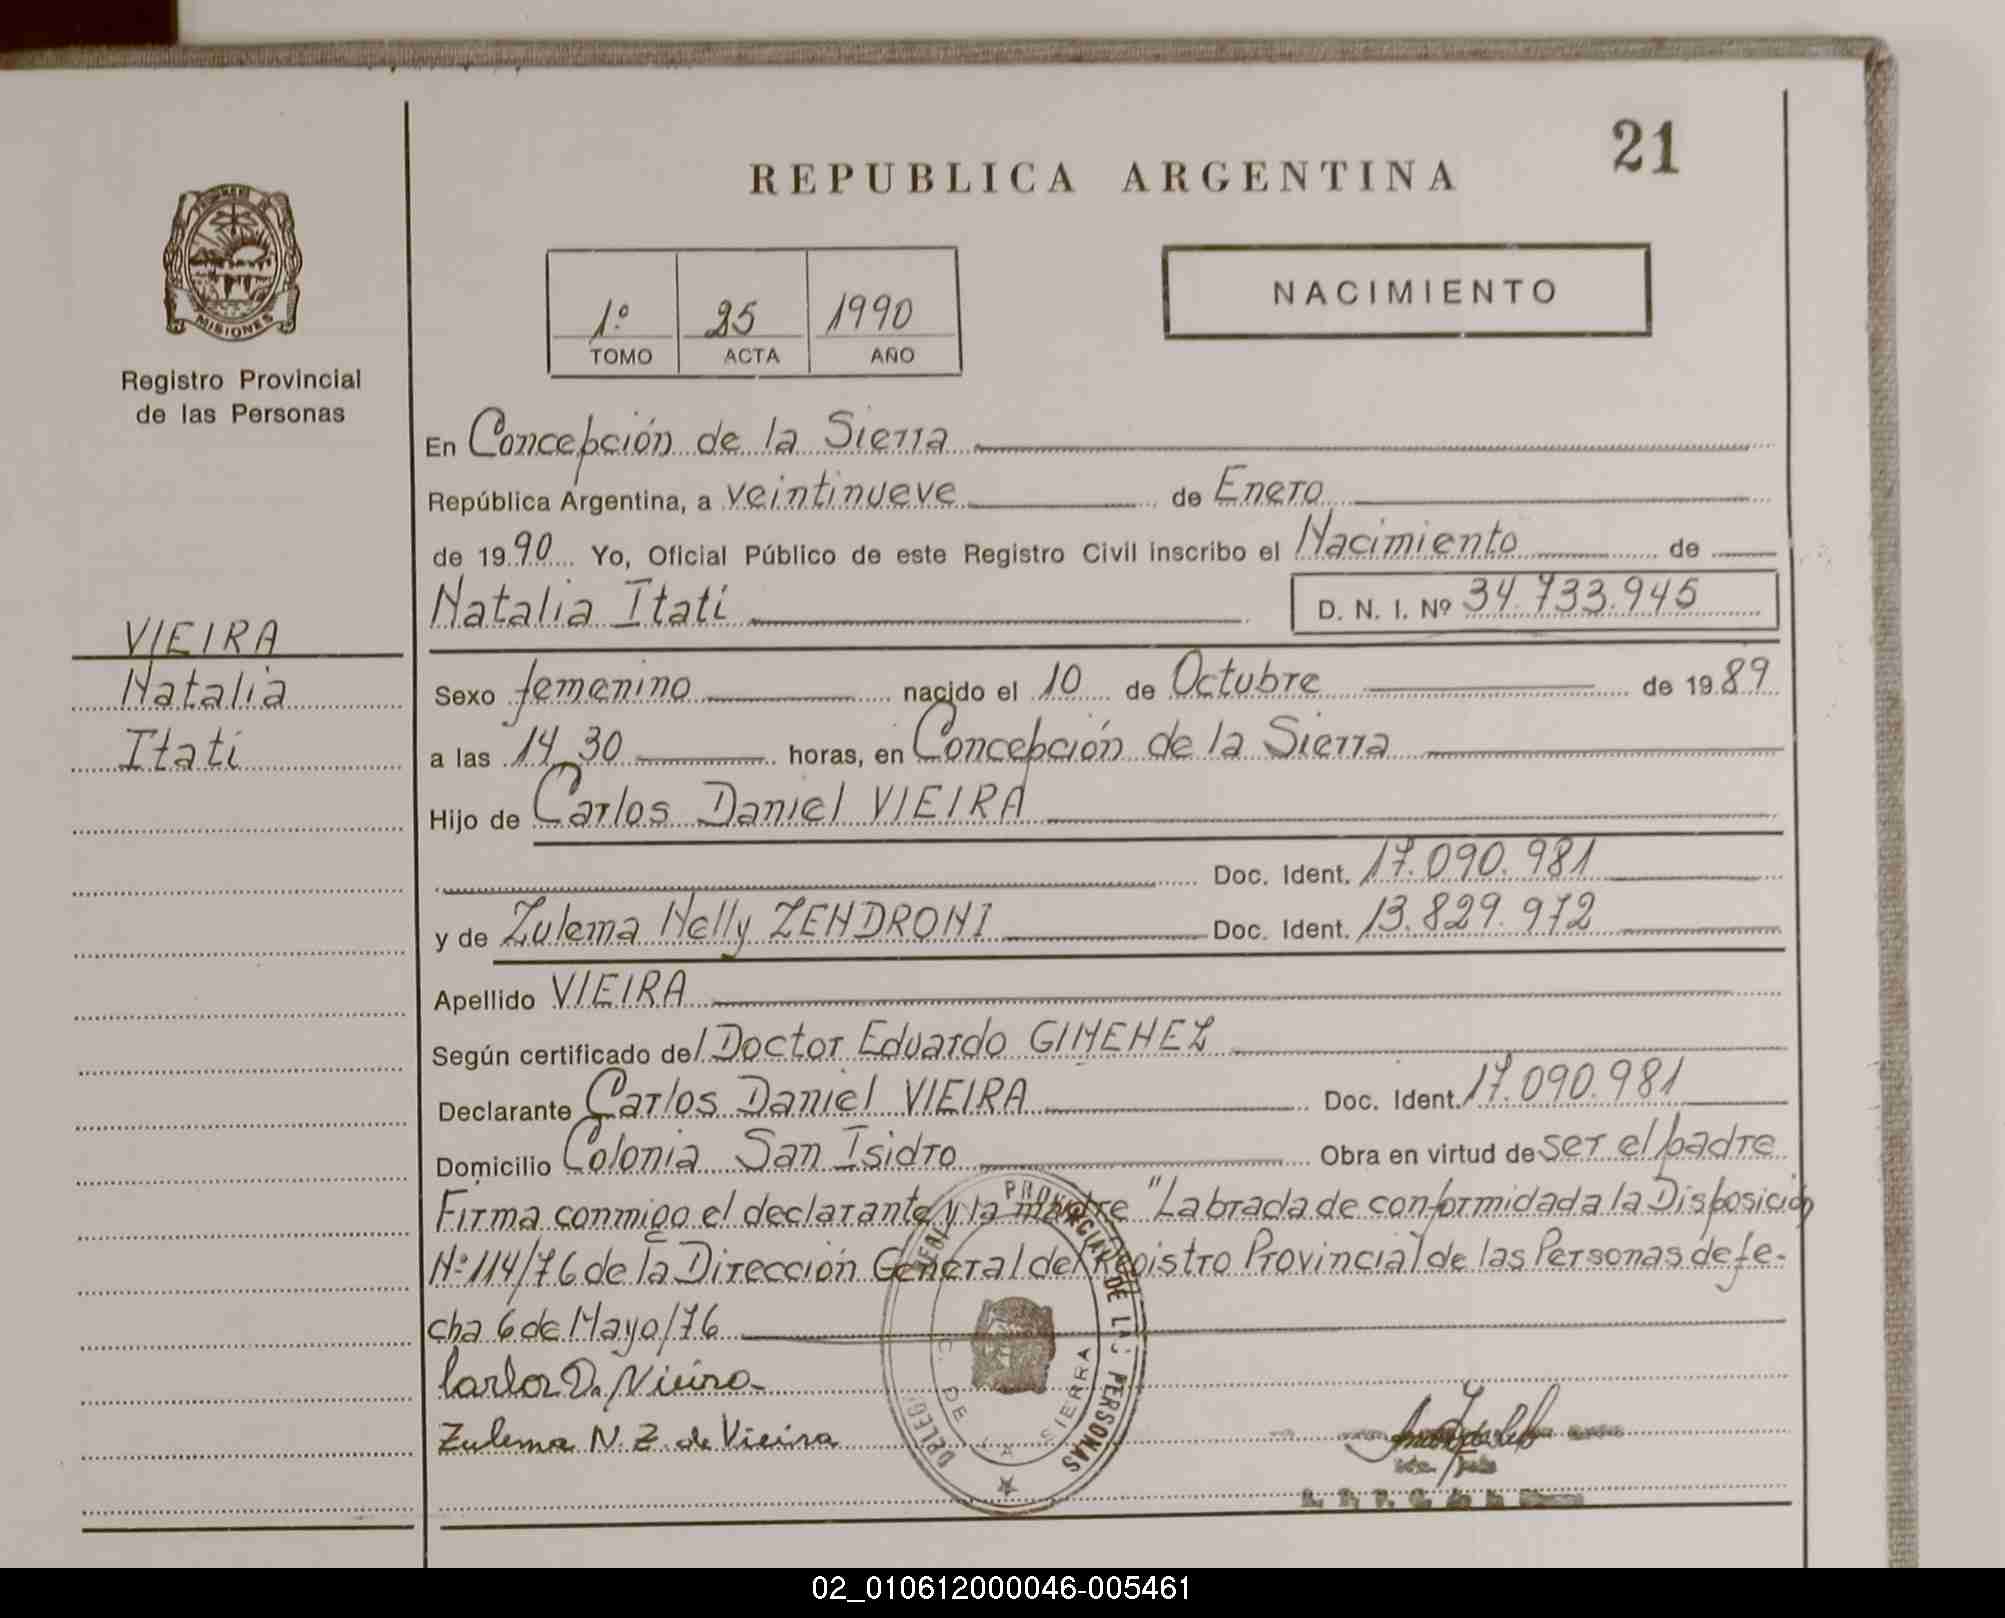 21
REPUBLICA ARGENTINA
MISIONES
Registro Provincial
de las Personas
1º 25 1990
TOMO ACTA AÑO
NACIMIENTO
En Concepción de la Sierra
República Argentina, a veintinueve de Enero
de 1990 Yo, Oficial Público de este Registro Civil inscribo el Nacimiento de
Natalia Itatí D. N. I. Nº 34.733.945
VIEIRA
Natalia
Itatí
Sexo femenino nacido el 10 de Octubre de 1989
a las 14,30 horas, en Concepción de la Sierra
Hijo de Carlos Daniel VIEIRA
Doc. Ident. 17.090.981
y de Zulema Nelly ZENDRONI Doc. Ident. 13.829.972
Apellido VIEIRA
Según certificado del Doctor Eduardo GIMENEZ
Declarante Carlos Daniel VIEIRA Doc. Ident. 17.090.981
Domicilio Colonia San Isidro Obra en virtud de ser el padre
Firma conmigo el declarante y la madre "Labrada de conformidad a la Disposición
Nº 114/76 de la Dirección General del Registro Provincial de las Personas de fe-
cha 6 de Mayo/76
Carlos D. Vieira
Zulema N. Z. de Vieira
PROVINCIAL DE LAS PERSONAS
C. DE LA SIERRA
02_010612000046-005461